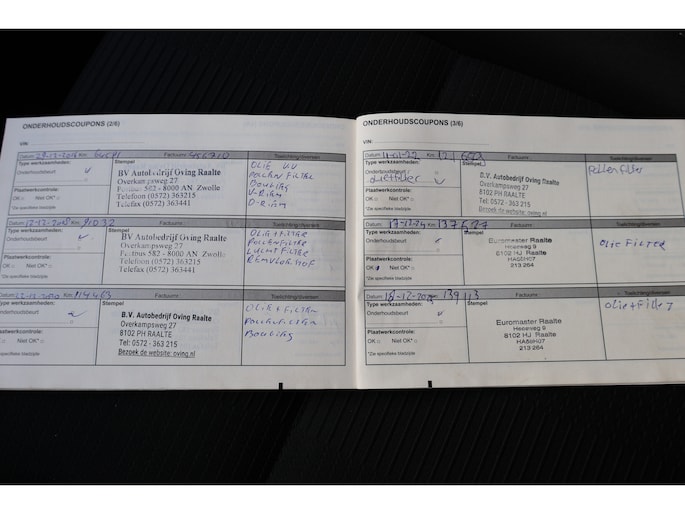 ONDERHOUDSCOUPONS (2/6)
VIN:
Datum: Km: Factuurnr.: Toelichting/diversen
Type werkzaamheden: Stempel
Onderhoudsbeurt
Plaatwerkcontrole:
OK Niet OK*
*Zie specifieke bladzijde
BV Autobedrijf Oving Raalte
Overkampsweg 27
Postbus 582 - 8000 AN Zwolle
Telefoon (0572) 363215
Telefax (0572) 363441
OLIE
POLLENFILTER
BOUGIES
O-RING
Datum: Km: Factuurnr.: Toelichting/diversen
Type werkzaamheden: Stempel
Onderhoudsbeurt
Plaatwerkcontrole:
OK Niet OK*
*Zie specifieke bladzijde
BV Autobedrijf Oving Raalte
Overkampsweg 27
Postbus 582 - 8000 AN Zwolle
Telefoon (0572) 363215
Telefax (0572) 363441
OLIE + FILTER
POLLENFILTER
LUCHTFILTER
REMVLOEISTOF
Datum: Km: 114463 Factuurnr.: Toelichting/diversen
Type werkzaamheden: Stempel
Onderhoudsbeurt
Plaatwerkcontrole:
OK Niet OK*
*Zie specifieke bladzijde
B.V. Autobedrijf Oving Raalte
Overkampsweg 27
8102 PH RAALTE
Tel: 0572 - 363 215
Bezoek de website: oving.nl
OLIE + FILTER
POLLENFILTER
BOUGIES
ONDERHOUDSCOUPONS (3/6)
VIN:
Datum: 11-01-22 Km: Factuurnr.: Toelichting/diversen
Type werkzaamheden: Stempel
Onderhoudsbeurt
oliefilter
Plaatwerkcontrole:
OK Niet OK*
*Zie specifieke bladzijde
B.V. Autobedrijf Oving Raalte
Overkampsweg 27
8102 PH RAALTE
Tel: 0572 - 363 215
Bezoek de website: oving.nl
Pollenfilter
Datum: 17-12-24 Km: 137627 Factuurnr.: Toelichting/diversen
Type werkzaamheden: Stempel
Onderhoudsbeurt
Plaatwerkcontrole:
OK Niet OK*
*Zie specifieke bladzijde
Euromaster Raalte
Heesweg 9
8102 HJ Raalte
213 264
Olie FILTER
Datum: Km: 139113 Factuurnr.: Toelichting/diversen
Type werkzaamheden: Stempel
Onderhoudsbeurt
Plaatwerkcontrole:
OK Niet OK*
*Zie specifieke bladzijde
Euromaster Raalte
Heesweg 9
8102 HJ Raalte
213 264
olie + Filter